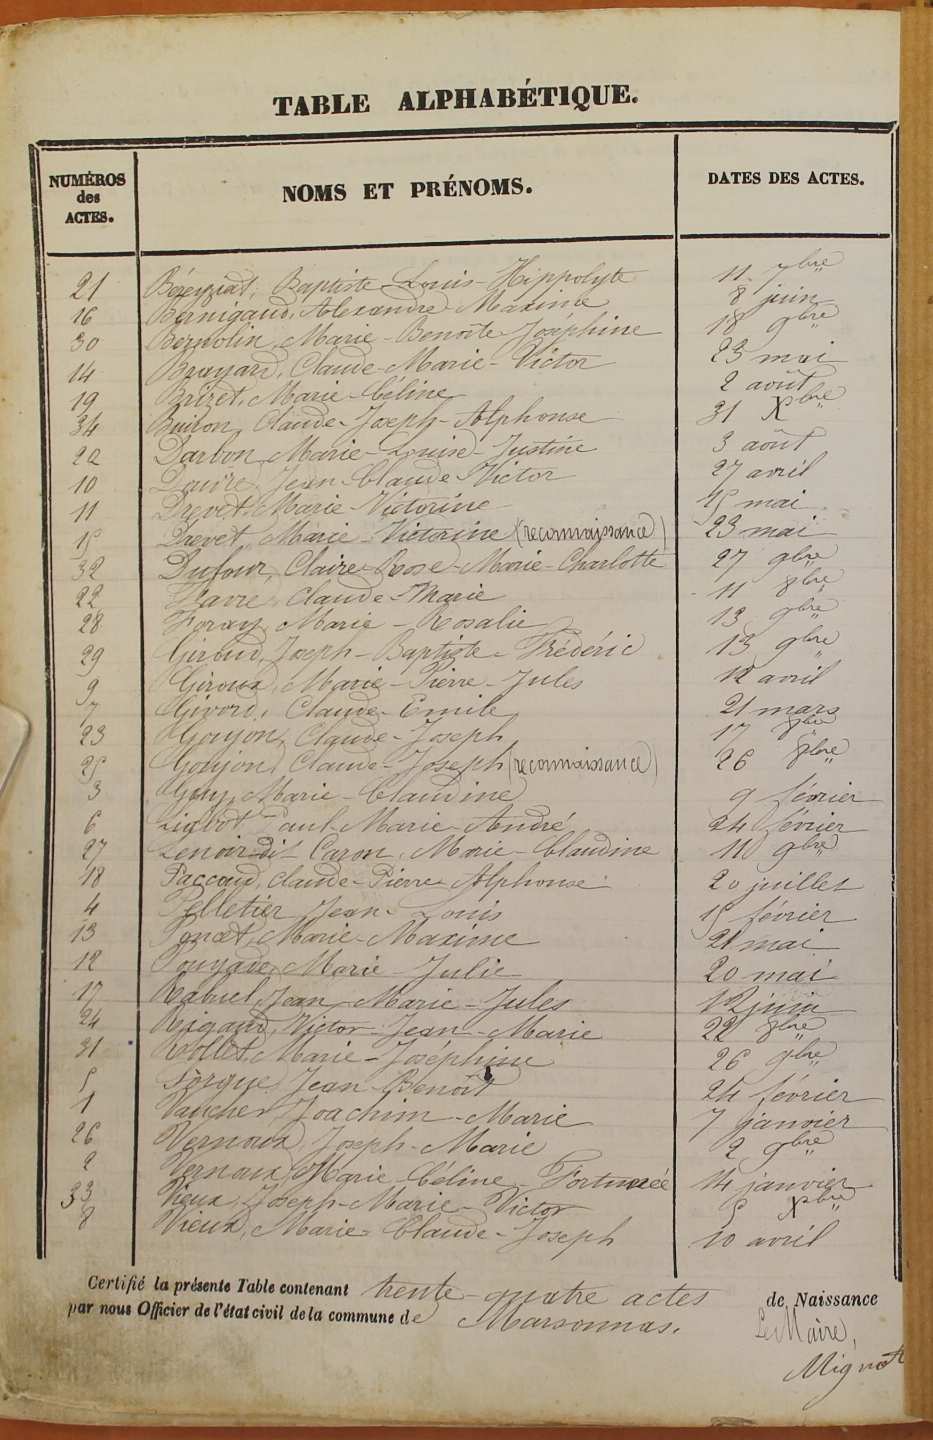 TABLE ALPHABÉTIQUE.
NUMÉROS des ACTES. NOMS ET PRÉNOMS. DATES DES ACTES.
21 Béreyziat, Baptiste Louis-Hippolyte 11 7bre
16 Bernigaud, Alexandre Maxime 8 juin
30 Bernolin, Marie-Benoîte-Joséphine 18 9bre
14 Brayard, Claude-Marie-Victor 23 mai
19 Brizet, Marie Céline 2 août
34 Buiron, Claude-Joseph-Alphonse 31 Xbre
20 Darbon, Marie-Louise-Justine 3 août
10 Jean-Claude-Victor 27 avril
11 Drevet, Marie-Victorine 15 mai
15 Drevet, Marie-Victorine (reconnaissance) 23 mai
32 Dufour, Claire-Rose-Marie-Charlotte 27 9bre
22 Favre, Claude-Marie 11 8bre
28 Foray, Marie-Rosalie 13 9bre
29 Giroud, Joseph-Baptiste-Frédéric 13 9bre
9 Giroux, Marie-Pierre-Jules 12 avril
7 Givord, Claude-Emile 21 mars
23 Goujon, Claude-Joseph 17 8bre
25 Goujon, Claude-Joseph (reconnaissance) 26 8bre
3 Guy, Marie-Claudine 9 février
6 Paul-Marie-André 24 février
27 Lenoir dit Caron, Marie-Claudine 11 9bre
18 Paccaud, Claude-Pierre-Alphonse 20 juillet
4 Pelletier, Jean-Louis 15 février
13 Poncet, Marie-Maxime 21 mai
12 Marie-Julie 20 mai
17 Rabuel, Jean-Marie-Jules 12 juin
24 Rigaud, Victor-Jean-Marie 22 8bre
31 Rollet, Marie-Joséphine 26 9bre
5 Sorgue, Jean-Benoît 24 février
1 Vaucher, Joachim-Marie 7 janvier
26 Vernoux, Joseph-Marie 2 9bre
2 Vernoux, Marie-Céline-Fortunée 14 janvier
33 Vieux, Joseph-Marie-Victor 5 Xbre
8 Vieux, Marie-Claude-Joseph 10 avril
Certifié la présente Table contenant trente-quatre actes de Naissance
par nous Officier de l'état civil de la commune de Marsonnas.
Le Maire,
Mignot